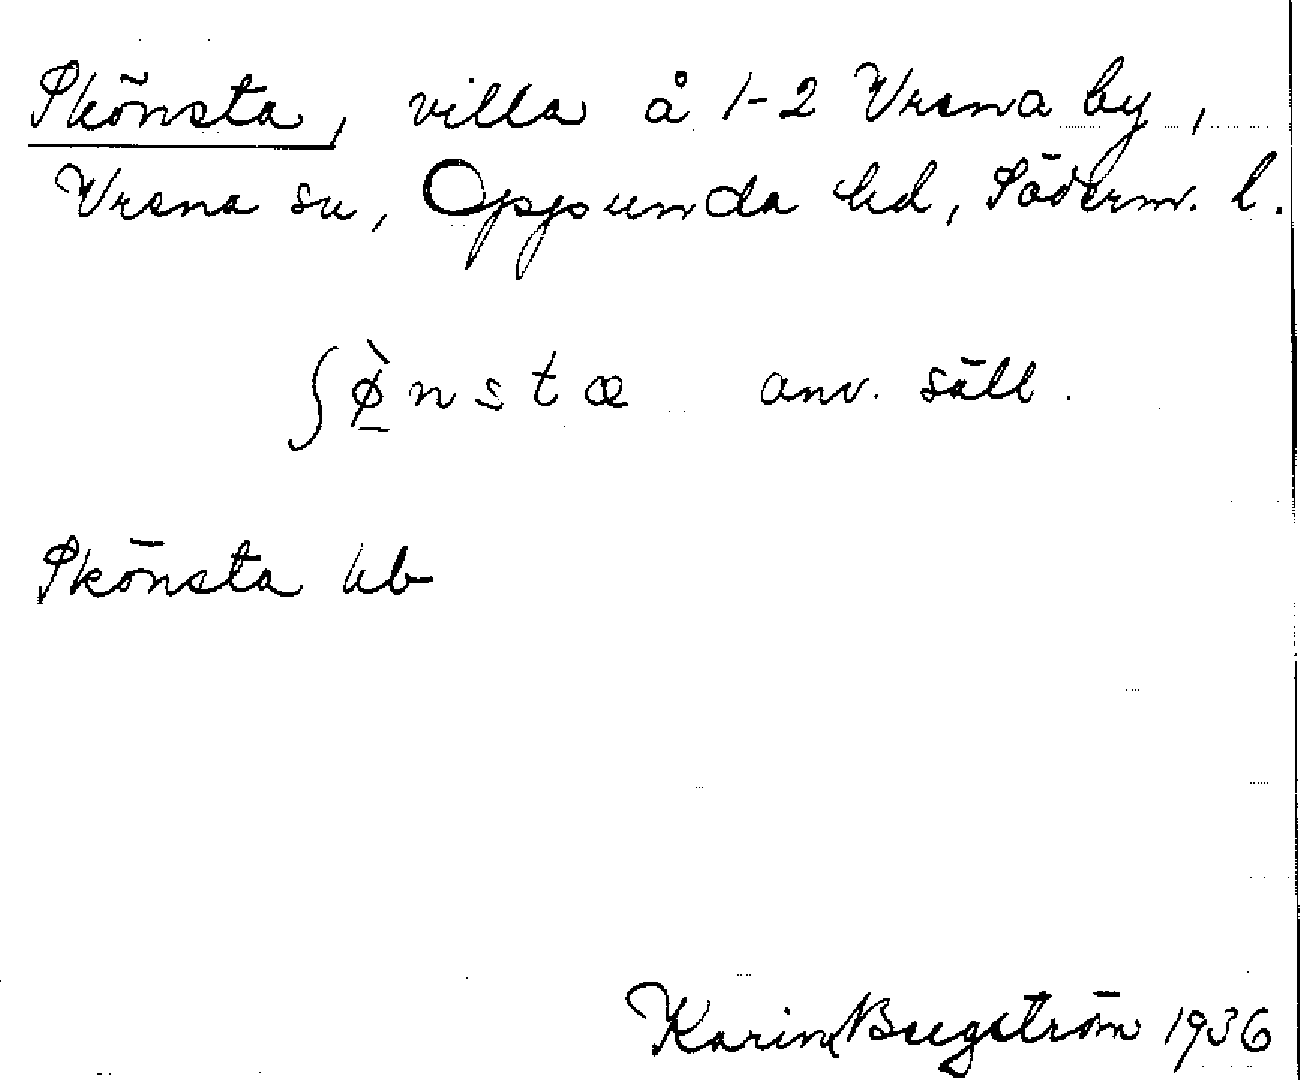 Skönsta, villa å 1-2 Vrena by,
Vrena sn, Oppunda hd, Söderm. l.
ʃø̠̀nstæ anv. säll.
Skönsta hb
Karin Bergström 1936